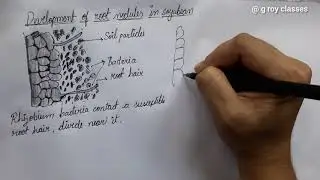 @ g roy classes
Development of root nodules in soyabean
Soil particles
Bacteria
root hair
Rhizobium bacteria contact a susceptible
root hair, divide near it.